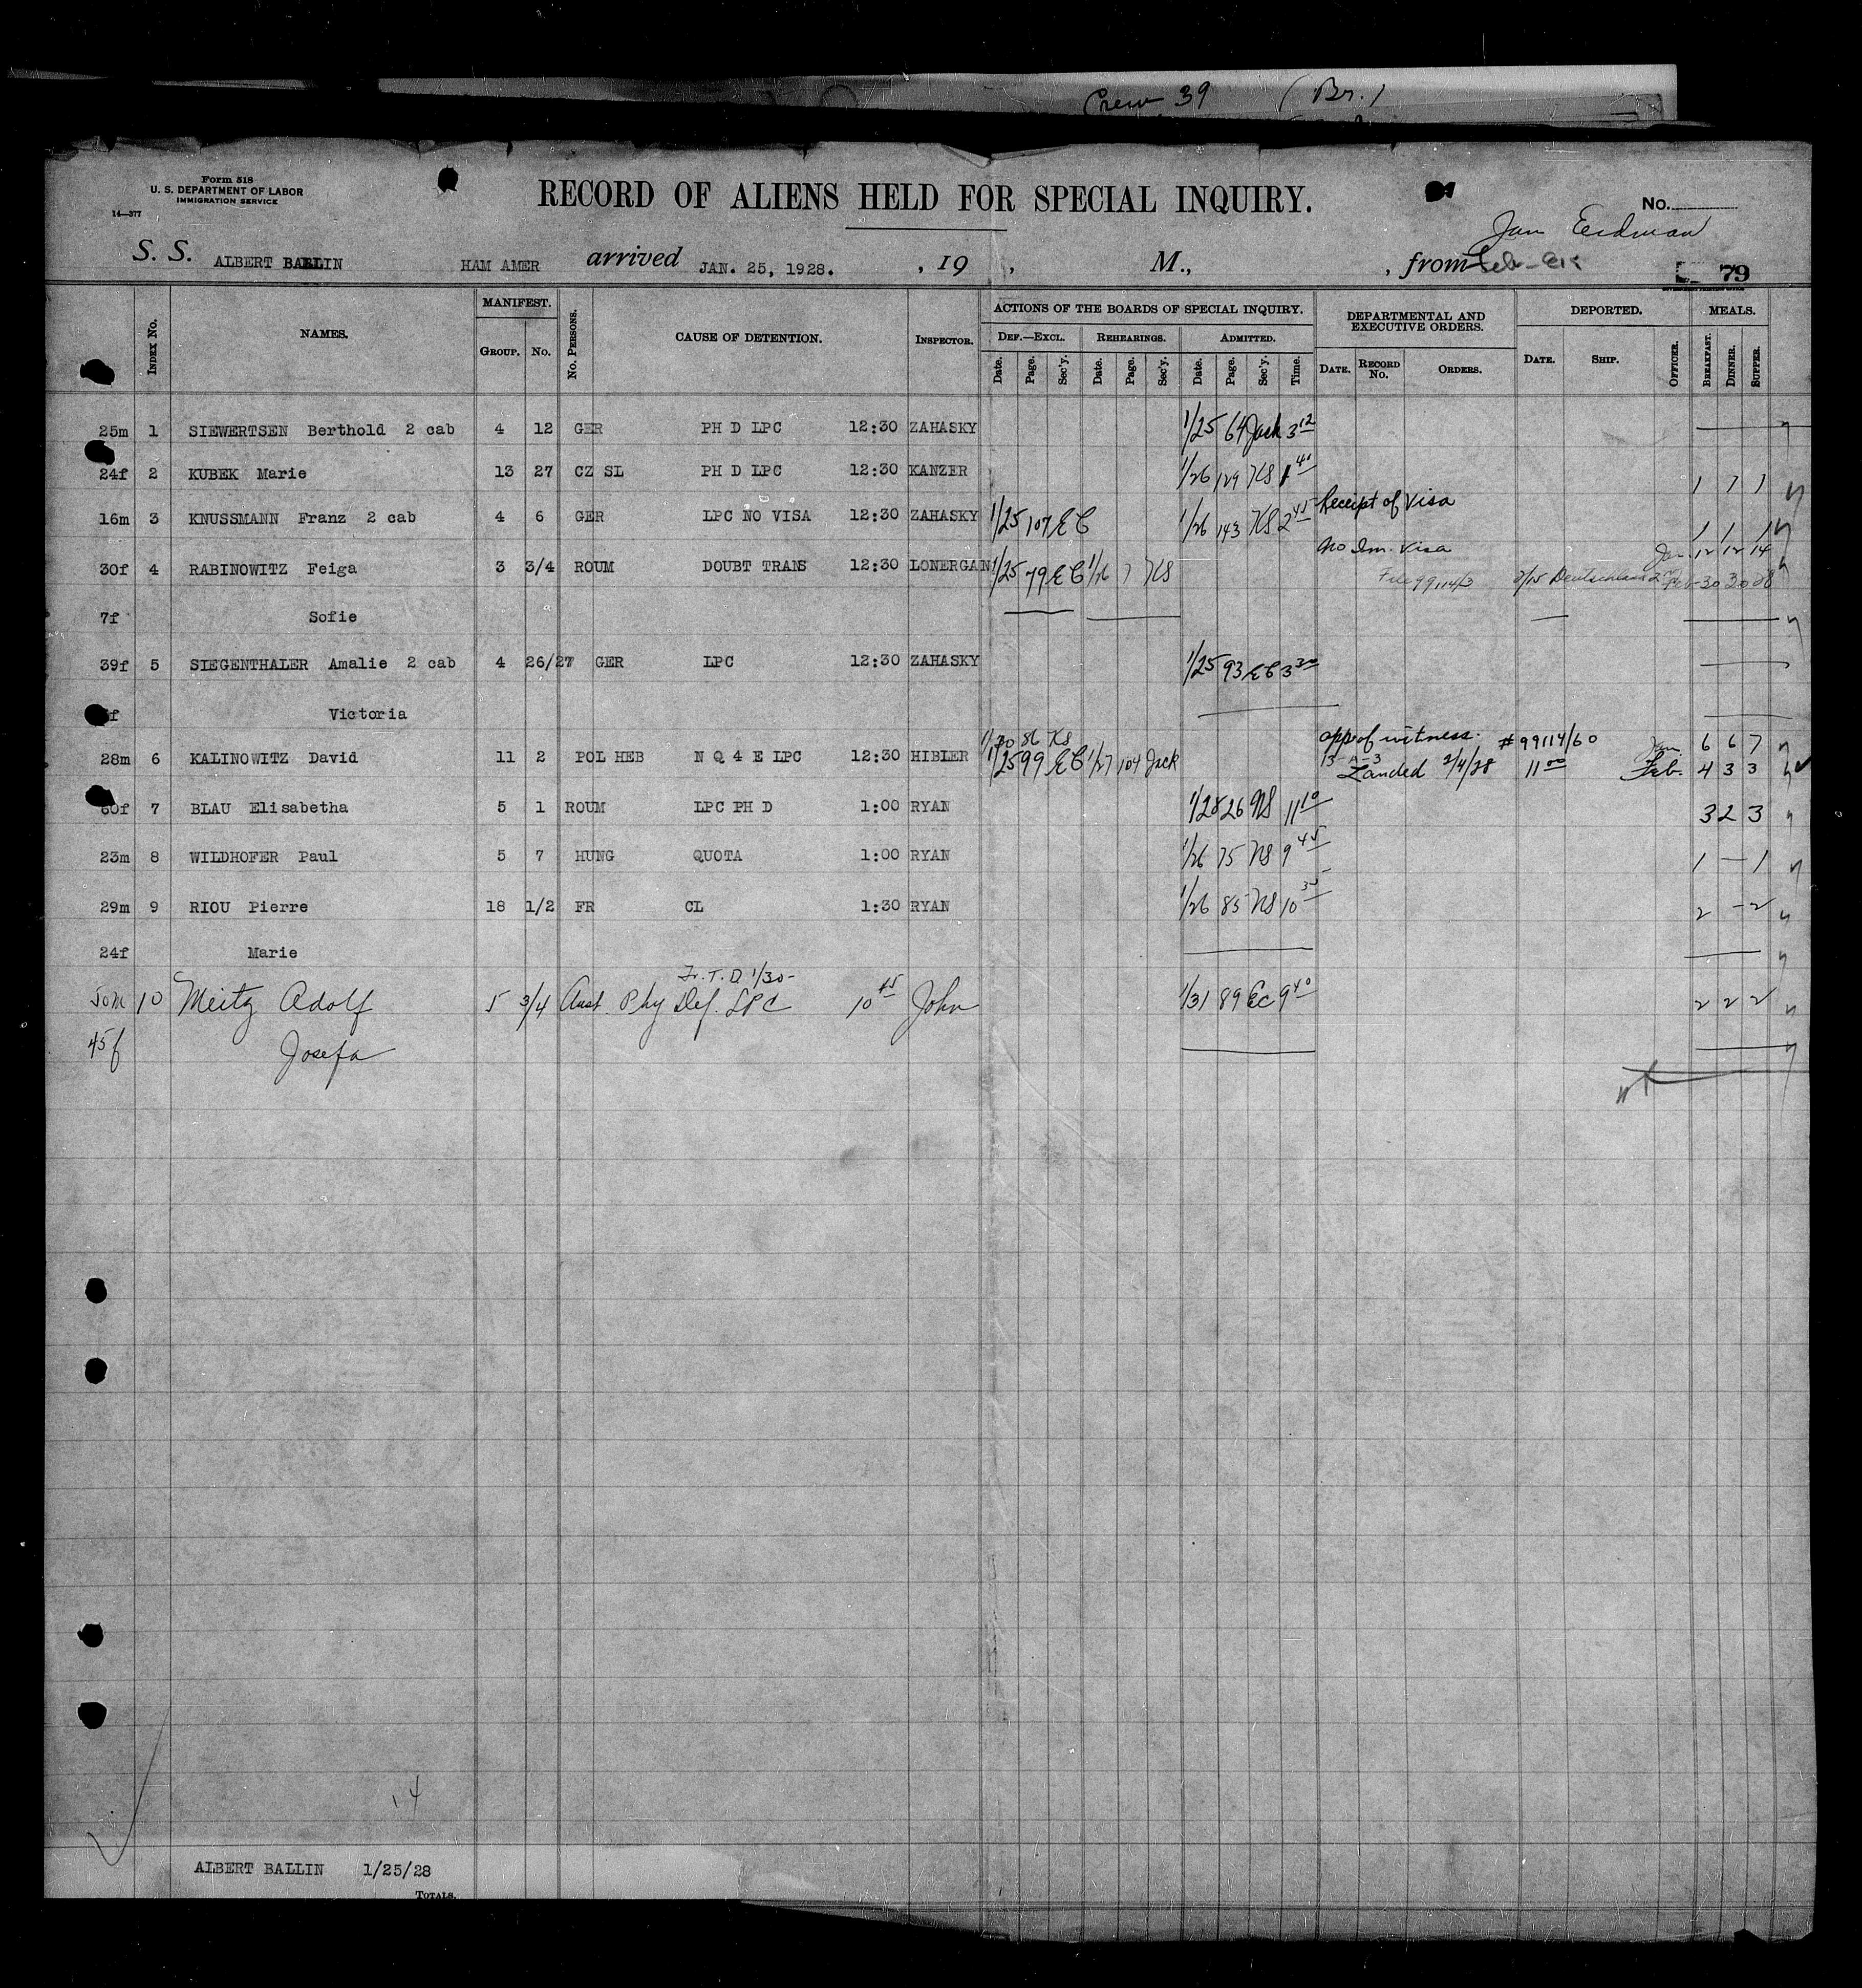 Crew 39 (Br.)
Form 518
U. S. DEPARTMENT OF LABOR
IMMIGRATION SERVICE
14—377
RECORD OF ALIENS HELD FOR SPECIAL INQUIRY.
No.
Jan Erdman
S. S. ALBERT BALLIN HAM AMER arrived JAN. 25, 1928. , 19 , M., , from Feb-
79
INDEX No. NAMES. MANIFEST. GROUP. No. No. PERSONS. CAUSE OF DETENTION. INSPECTOR. ACTIONS OF THE BOARDS OF SPECIAL INQUIRY. DEPARTMENTAL AND EXECUTIVE ORDERS. DEPORTED. MEALS.
DEF.—EXCL. REHEARINGS. ADMITTED.
Date. Page. Sec'y. Date. Page. Sec'y. Date. Page. Sec'y. Time. DATE. RECORD No. ORDERS. DATE. SHIP. OFFICER. BREAKFAST. DINNER. SUPPER.
25m 1 SIEWERTSEN Berthold 2 cab 4 12 GER PH D LPC 12:30 ZAHASKY 1/25 64 Jack 3 12
24f 2 KUBEK Marie 13 27 CZ SL PH D LPC 12:30 KANZER 1/26 129 KS 1 40 1 1 1
16m 3 KNUSSMANN Franz 2 cab 4 6 GER LPC NO VISA 12:30 ZAHASKY 1/25 107 EC 1/26 143 KS 2 45 Receipt of Visa 1 1 1
No Im. Visa Jan. 12 12 14
30f 4 RABINOWITZ Feiga 3 3/4 ROUM DOUBT TRANS 12:30 LONERGAN 1/25 79 EC 1/26 7 KS File 99114/3 3/15 Deutschland Feb 30 30 28
7f Sofie
39f 5 SIEGENTHALER Amalie 2 cab 4 26/27 GER LPC 12:30 ZAHASKY 1/25 93 EC 3 30
f Victoria
1/30 86 KS app of witness. # 99114/60 Jan 6 6 7
28m 6 KALINOWITZ David 11 2 POL HEB N Q 4 E LPC 12:30 HIBLER 1/25 99 EC 1/27 104 Jack 13-A-3 Landed 2/4/28 11 00 Feb. 4 3 3
60f 7 BLAU Elisabetha 5 1 ROUM LPC PH D 1:00 RYAN 1/28 26 NS 11 10 3 2 3
23m 8 WILDHOFER Paul 5 7 HUNG QUOTA 1:00 RYAN 1/26 75 NS 9 45 1 — 1
29m 9 RIOU Pierre 18 1/2 FR CL 1:30 RYAN 1/26 85 NS 10 35 2 - 2
24f Marie
Fr. T. D 1/30-
50m 10 Meitz Adolf 5 3/4 Aust. Phy Def. LPC 10 45 John 1/31 89 EC 9 40 2 2 2
45f Josefa
14
ALBERT BALLIN 1/25/28
TOTALS.